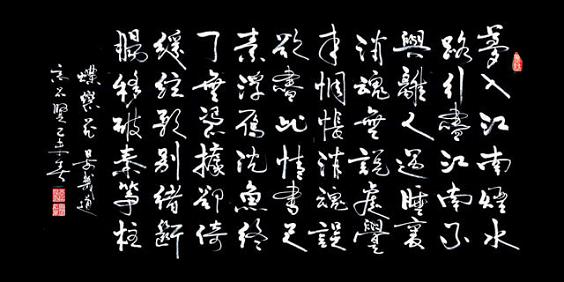 夢入江南煙水
路行盡江南不
與離人遇睡裏
消魂無說處覺
來惆悵消魂誤
欲盡此情書尺
素浮雁沈魚終
了無憑據卻倚
緩絃歌別緒斷
腸移破秦箏柱
蝶戀花 晏幾道